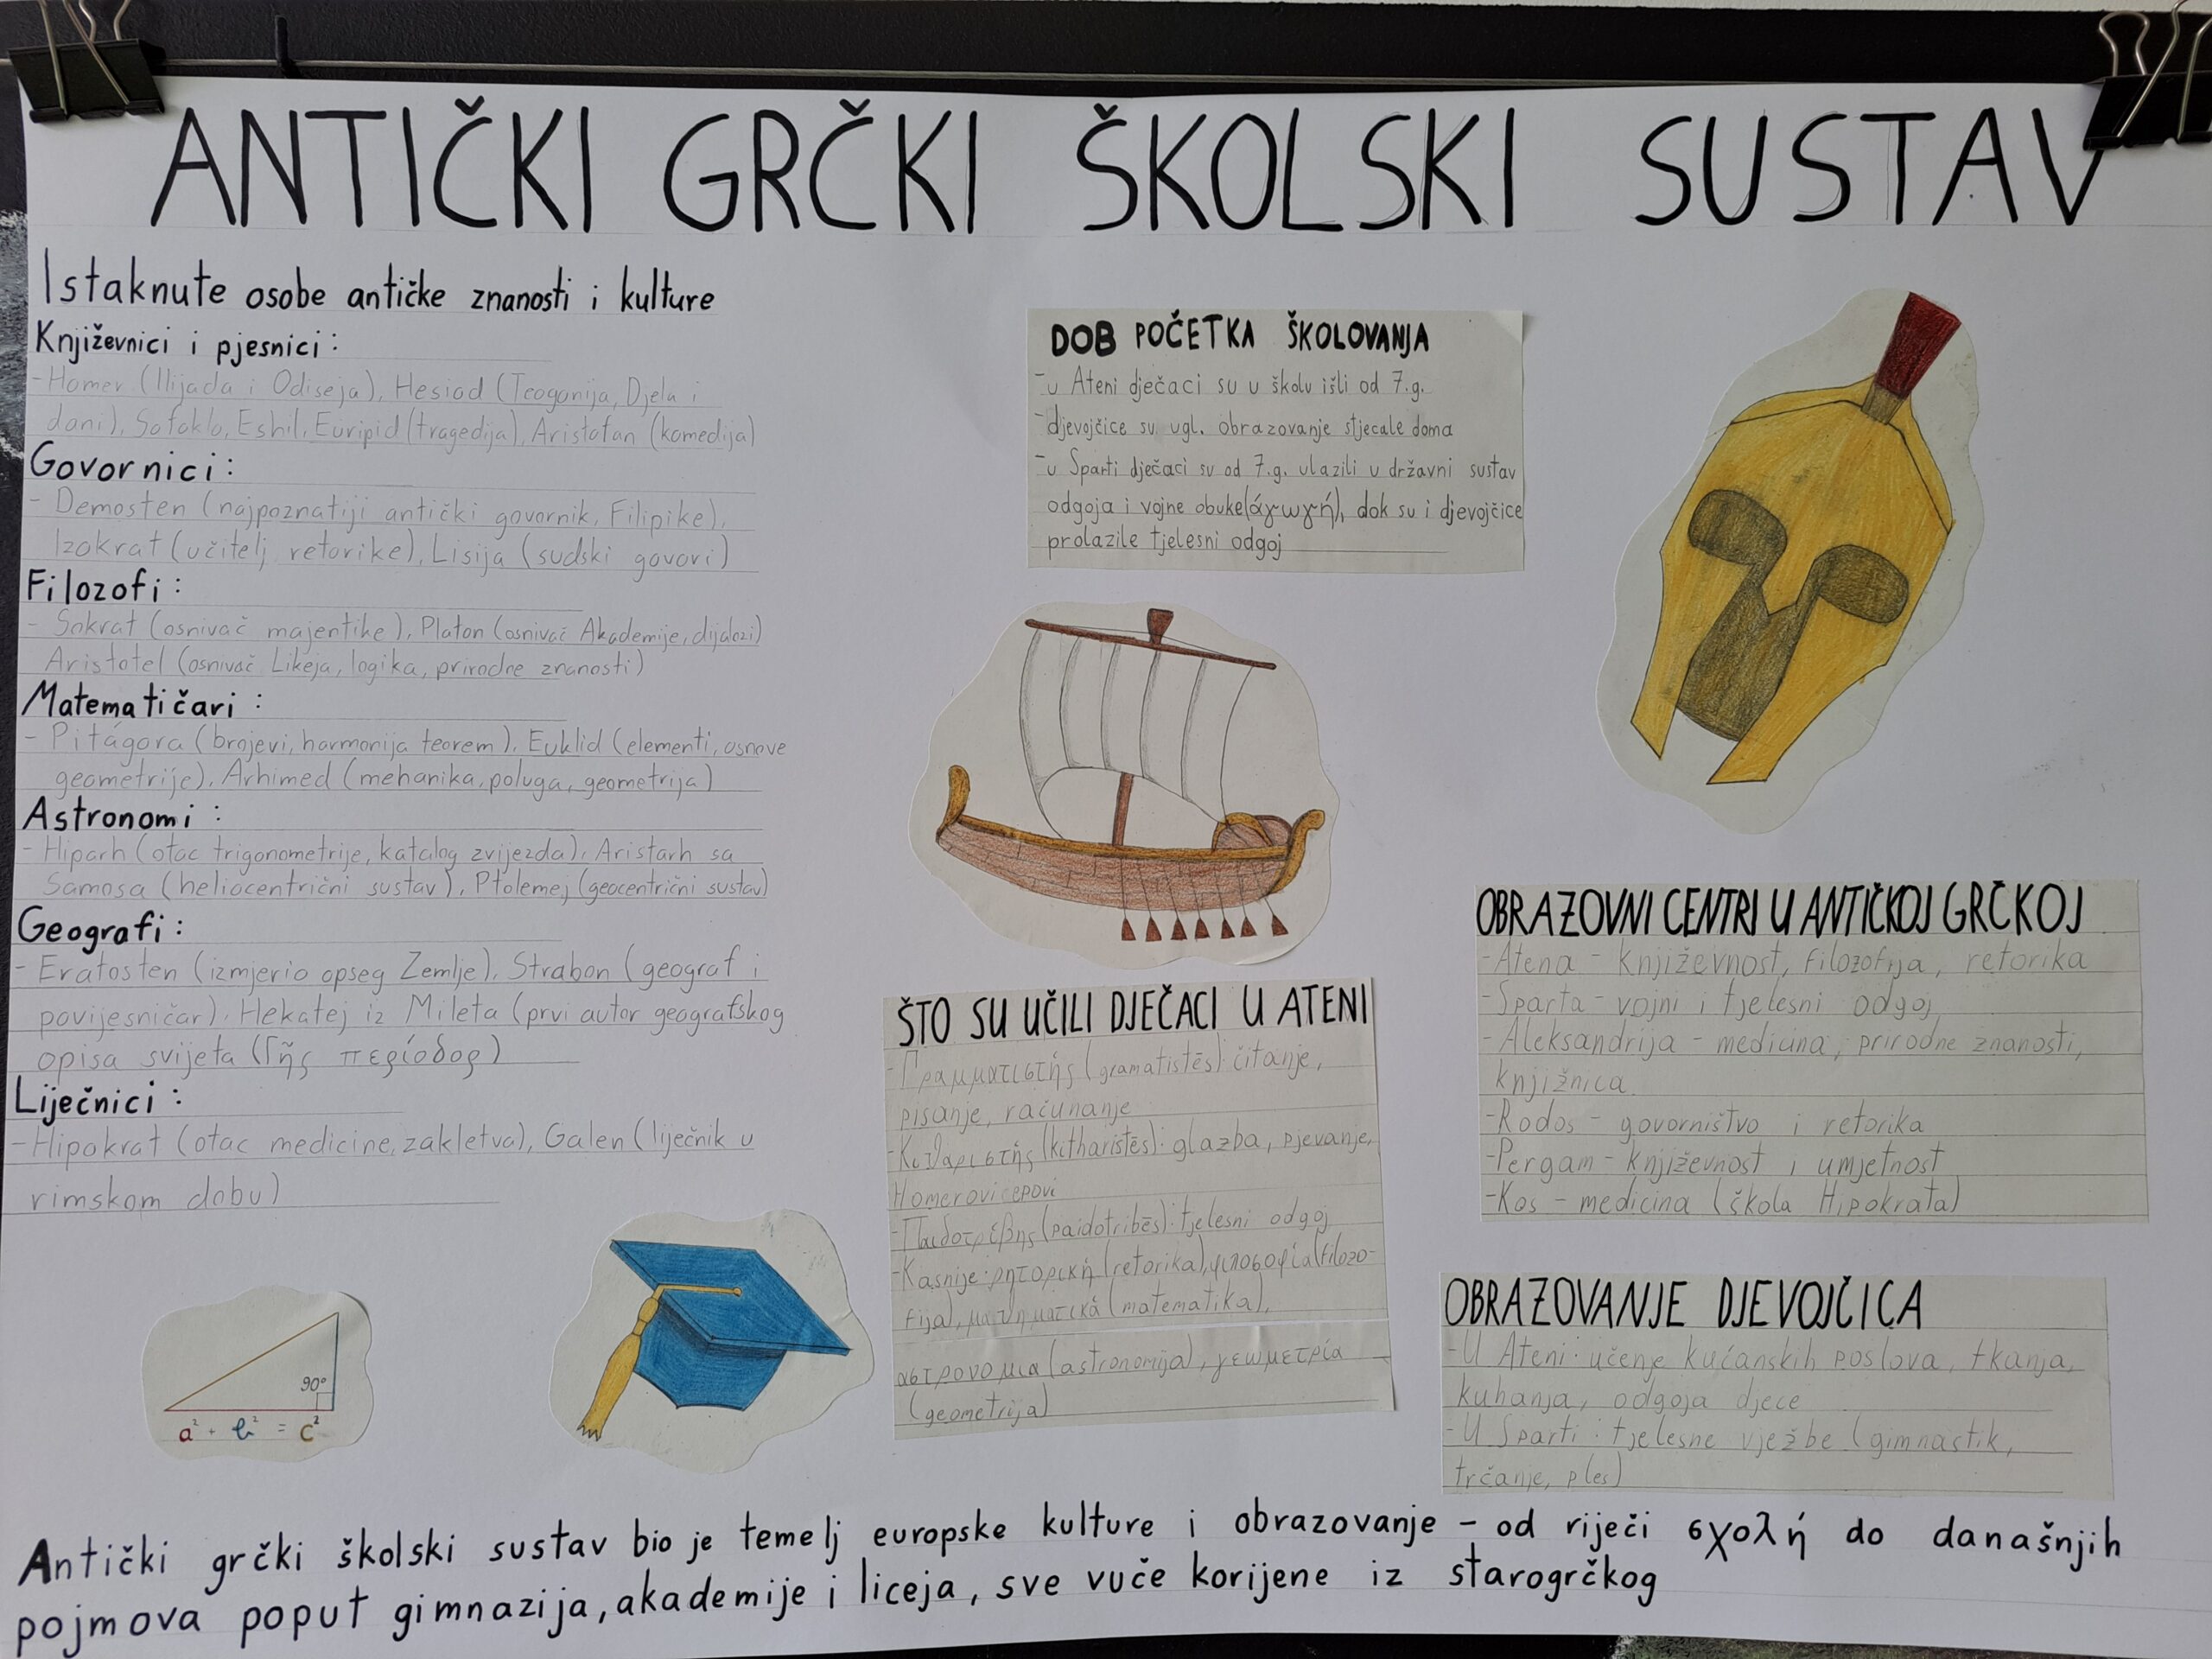 ANTIČKI GRČKI ŠKOLSKI SUSTAV
Istaknute osobe antičke znanosti i kulture
Književnici i pjesnici:
-Homer (Ilijada i Odiseja), Hesiod (Teogonija, Djela i
dani), Sofoklo, Eshil, Euripid (tragedija), Aristofan (komedija)
Govornici:
- Demosten (najpoznatiji antički govornik, Filipike),
Izokrat (učitelj retorike), Lisija (sudski govori)
Filozofi:
- Sokrat (osnivač majentike), Platon (osnivač Akademije, dijalozi)
Aristotel (osnivač Likeja, logika, prirodne znanosti)
Matematičari:
- Pitágora (brojevi, harmonija teorem), Euklid (elementi, osnove
geometrije), Arhimed (mehanika, poluga, geometrija)
Astronomi:
- Hiparh (otac trigonometrije, katalog zvijezda), Aristarh sa
Samosa (heliocentrični sustav), Ptolemej (geocentrični sustav)
Geografi:
- Eratosten (izmjerio opseg Zemlje), Strabon (geograf i
povijesničar), Hekatej iz Mileta (prvi autor geografskog
opisa svijeta (Γῆς περίοδος)
Liječnici:
-Hipokrat (otac medicine, zakletva), Galen (liječnik u
rimskom dobu)
90°
a² + b² = c²
DOB POČETKA ŠKOLOVANJA
-u Ateni dječaci su u školu išli od 7.g.
-djevojčice su ugl. obrazovanje stjecale doma
-u Sparti dječaci su od 7.g. ulazili u državni sustav
odgoja i vojne obuke(άγωγή), dok su i djevojčice
prolazile tjelesni odgoj
ŠTO SU UČILI DJEČACI U ATENI
-Γραμματιστής (gramatistēs): čitanje,
pisanje, računanje
-Κιθαριστής (kitharistēs): glazba, pjevanje,
Homerovi epovi
-Παιδοτρίβης (paidotribēs): tjelesni odgoj
-Kasnije: ρητορική (retorika), φιλοσοφία (filozo-
fija), μαθηματικά (matematika),
αστρονομια (astronomija), γεωμετρία
(geometrija)
OBRAZOVNI CENTRI U ANTIČKOJ GRČKOJ
-Atena - književnost, filozofija, retorika
-Sparta - vojni i tjelesni odgoj
-Aleksandrija - medicina, prirodne znanosti,
knjižnica
-Rodos - govorništvo i retorika
-Pergam - književnost i umjetnost
-Kos - medicina (škola Hipokrata)
OBRAZOVANJE DJEVOJČICA
-U Ateni: učenje kućanskih poslova, tkanja,
kuhanja, odgoja djece
-U Sparti: tjelesne vježbe (gimnastik,
trčanje, ples)
Antički grčki školski sustav bio je temelj europske kulture i obrazovanje - od riječi σχολή do današnjih
pojmova poput gimnazija, akademije i liceja, sve vuče korijene iz starogrčkog